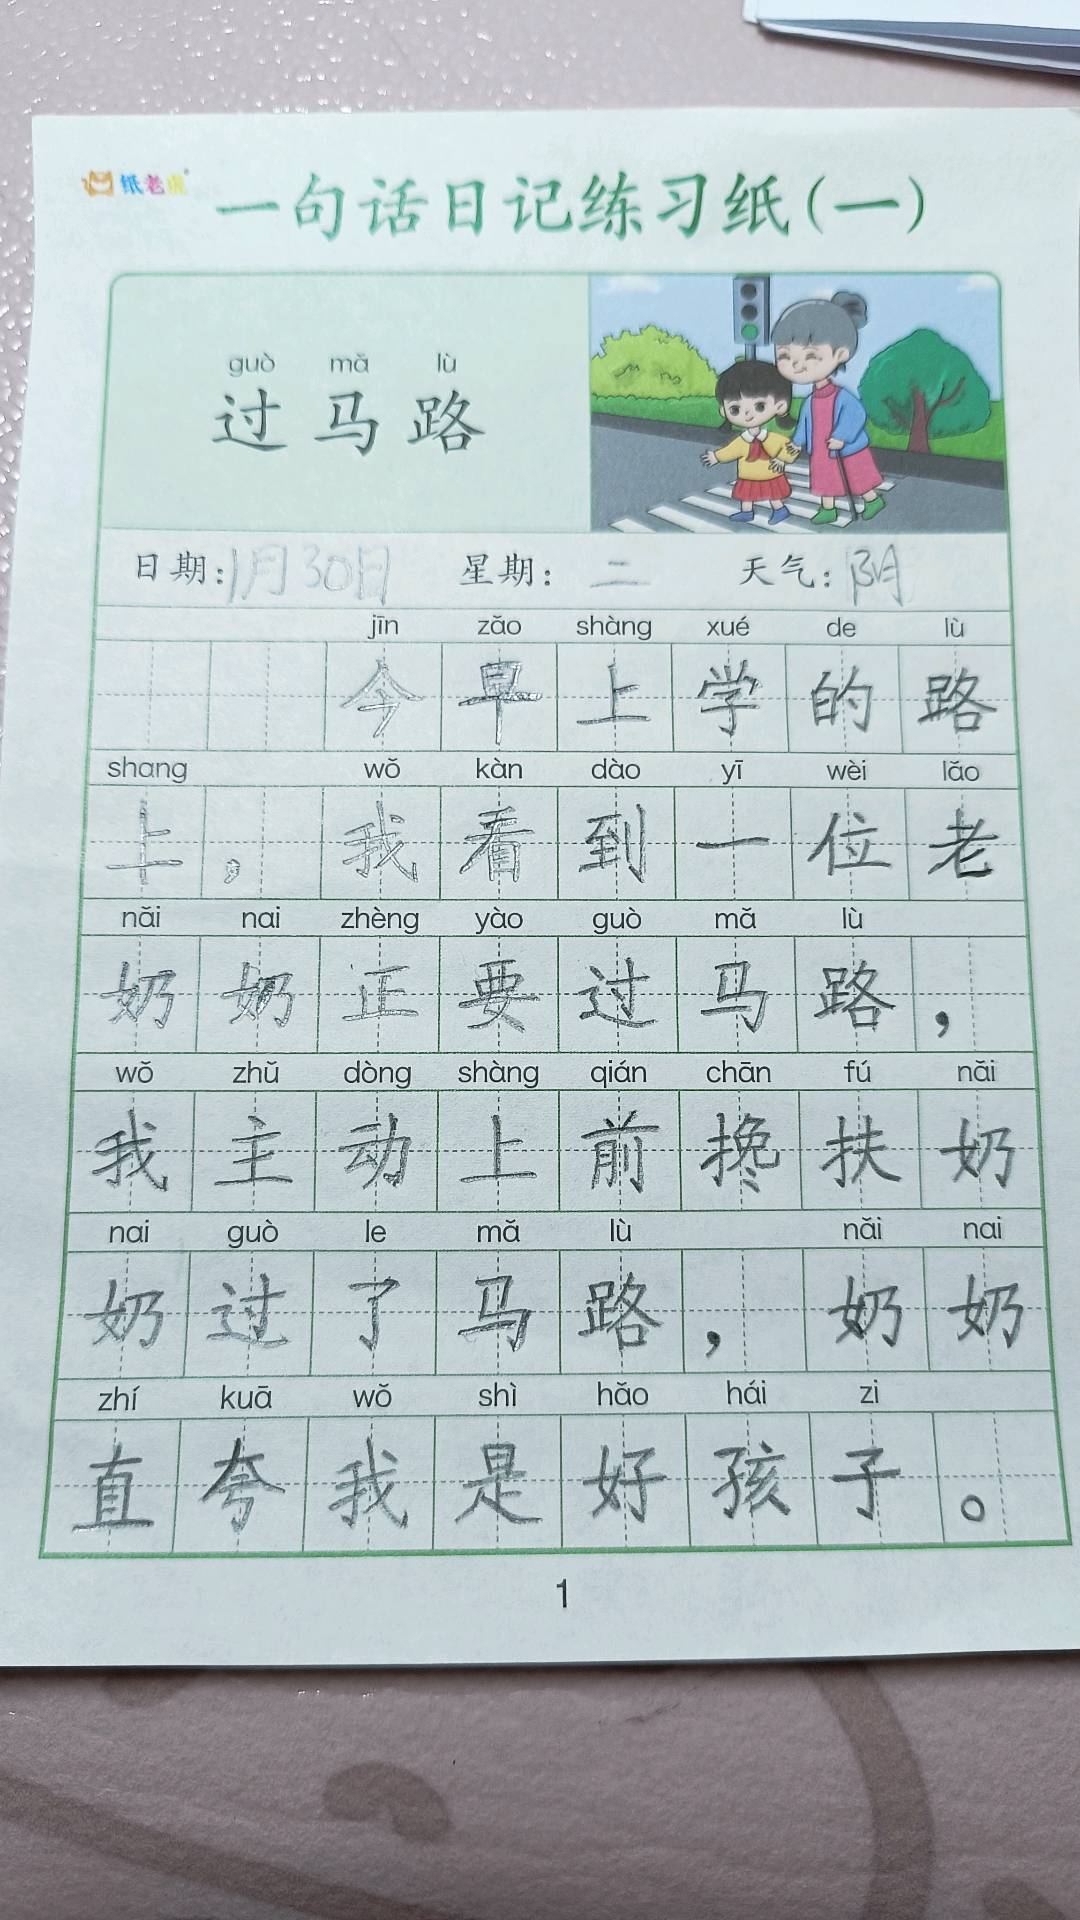 纸老虎
一句话日记练习纸(一)
guò mǎ lù
过马路
日期:1月30日 星期:二 天气:阴
jīn zǎo shàng xué de lù
今早上学的路
shang wǒ kàn dào yī wèi lǎo
上,我看到一位老
nǎi nai zhèng yào guò mǎ lù
奶奶正要过马路,
wǒ zhǔ dòng shàng qián chān fú nǎi
我主动上前搀扶奶
nai guò le mǎ lù nǎi nai
奶过了马路,奶奶
zhí kuā wǒ shì hǎo hái zi
直夸我是好孩子。
1